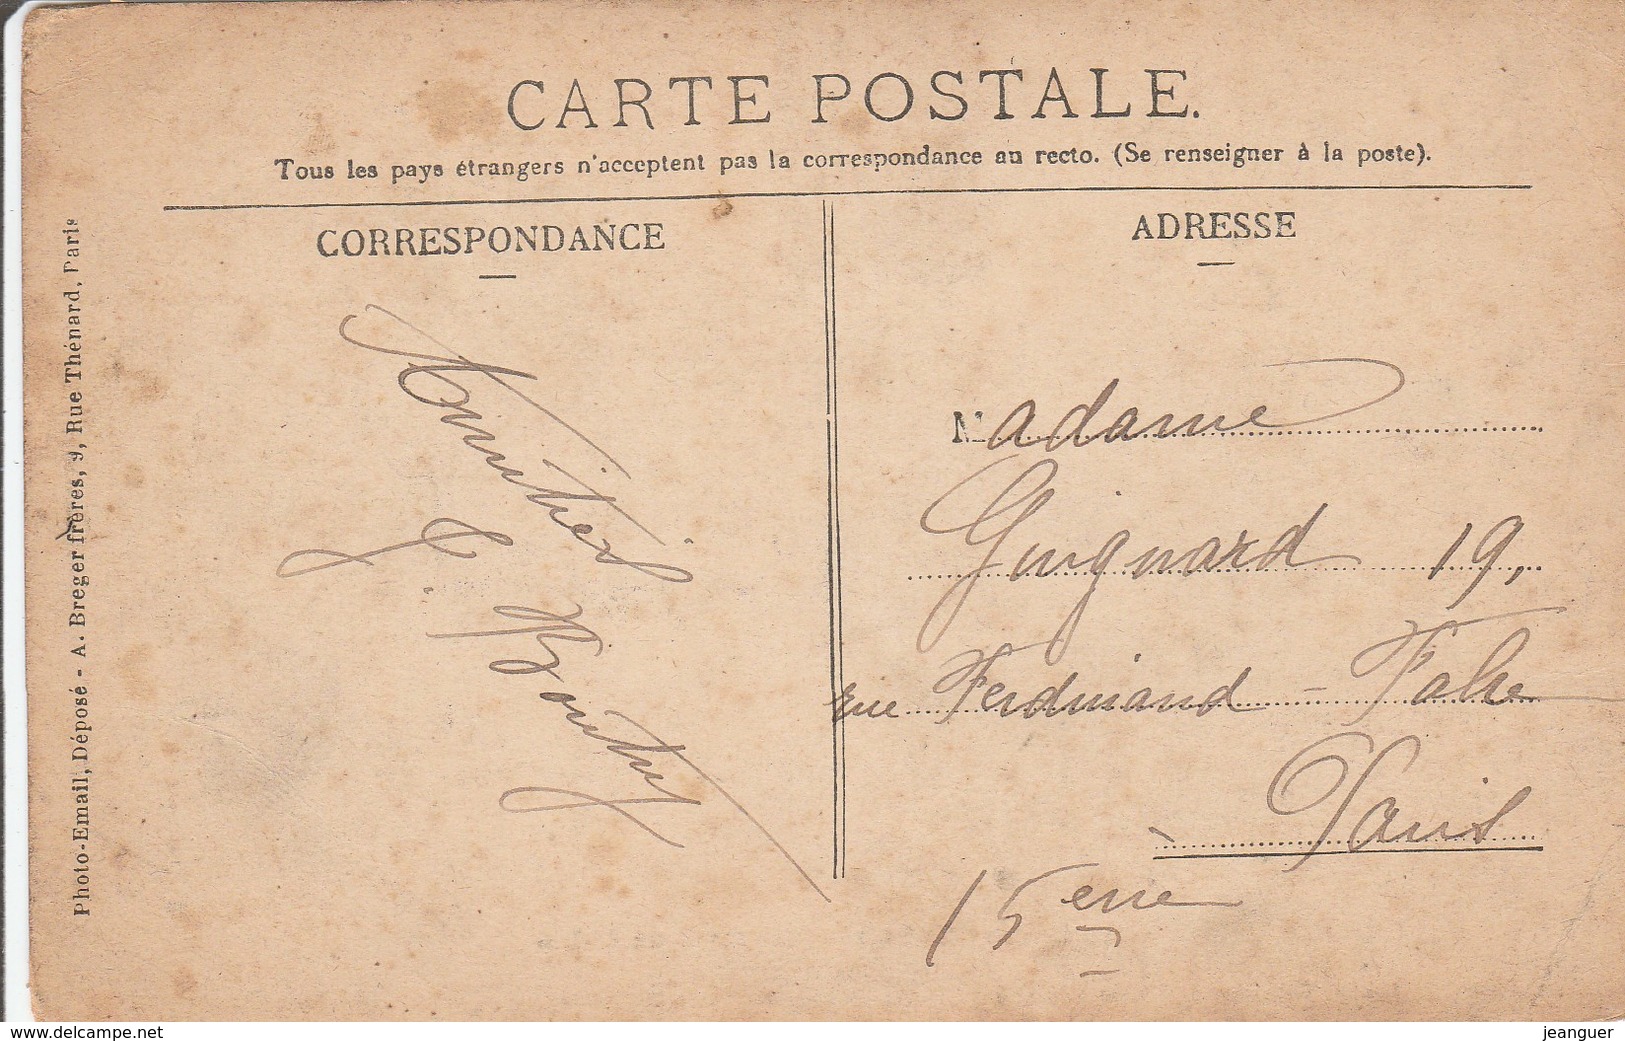 CARTE POSTALE.
Tous les pays étrangers n'acceptent pas la correspondance au recto. (Se renseigner à la poste).
CORRESPONDANCE
ADRESSE
Photo-Email, Déposé - A. Breger frères, 9, Rue Thénard, Paris
Amitiés
Madame
Guignard 19,
rue Ferdinand-Fabre
Paris
15eme
www.delcampe.net
jeanguer